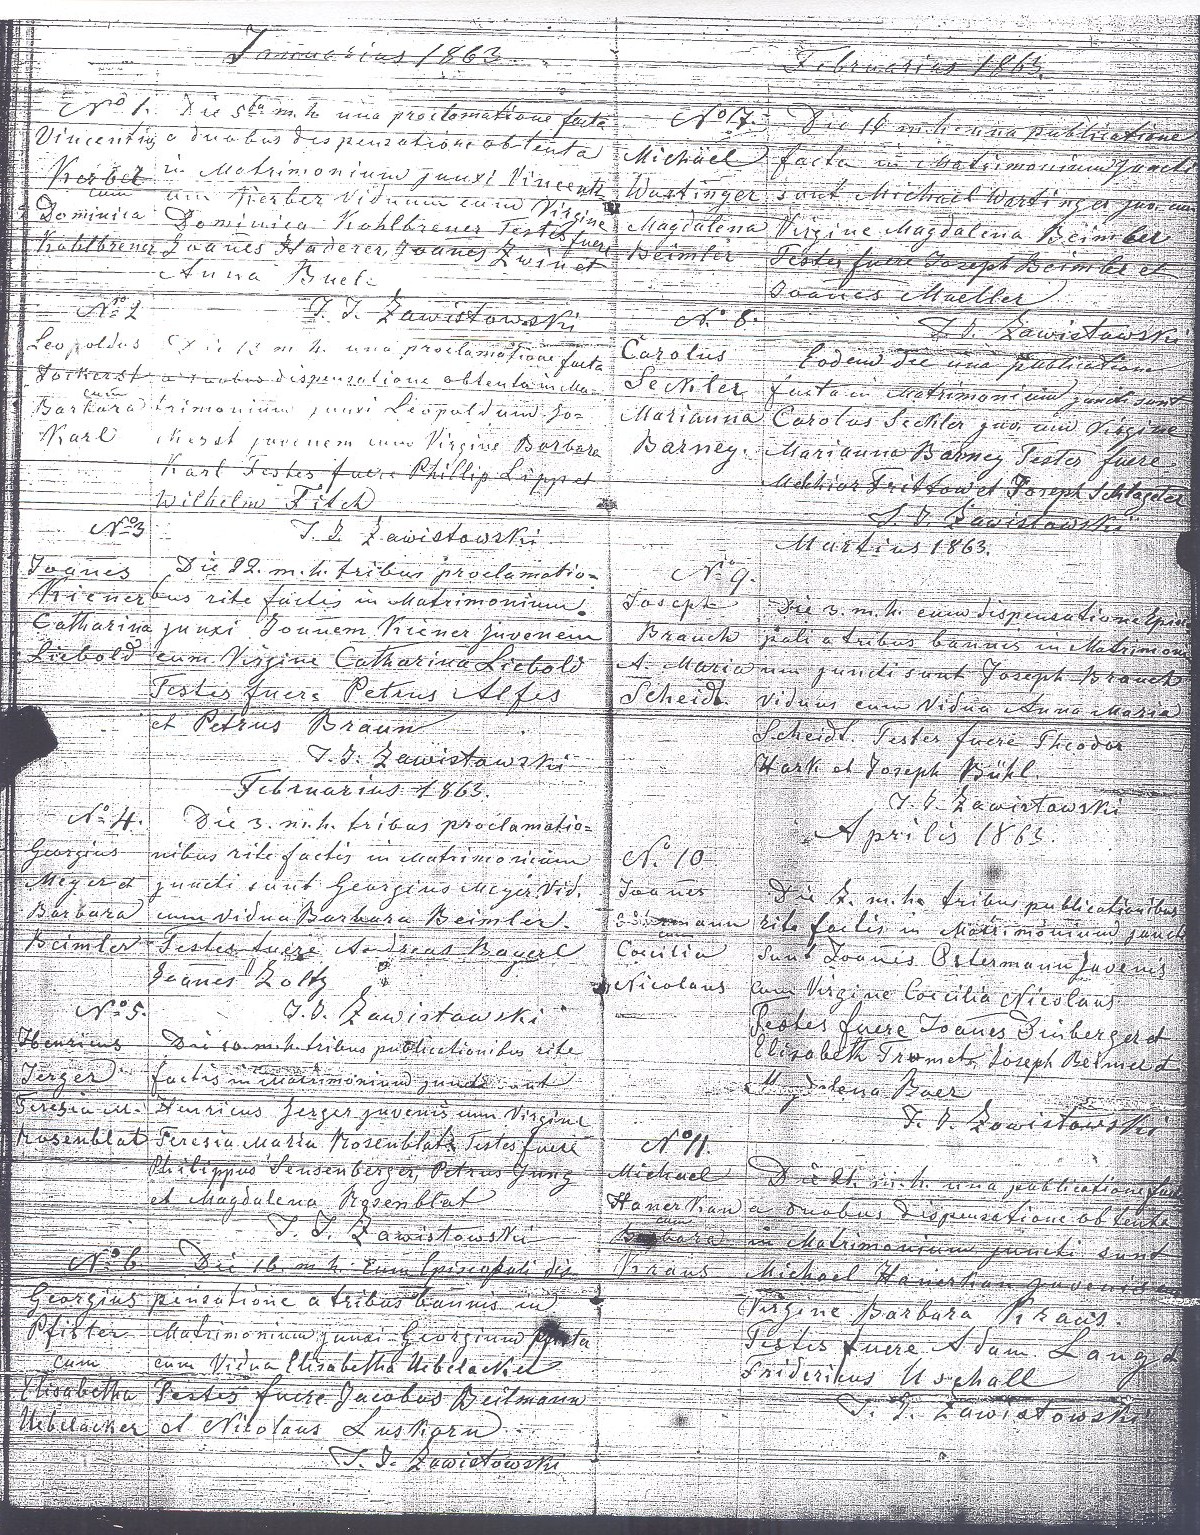 Januarius 1863.
No 1.
Vincentius
Kerber
cum
Dominica
Kohlbrener
Die 5ta m. h. una proclamatione facta
a duabus dispensatione obtenta
in Matrimonium junxi Vincenti
um Kerber Viduum cum Virgine
Dominica Kohlbrener Testes fuere
Joanes Haderer, Joanes Zwin et
Anna Buel.
T. J. Zawistowski
No 2
Leopoldus
Jockerst
cum
Barbara
Karl
Die 12 m. h. una proclamatione facta
a duabus dispensatione obtenta in Ma-
trimonium junxi Leopoldum Jo-
kerst juvenem cum Virgine Barbara
Karl Testes fuere Phillip Lipp et
Wilhelm Fitch
T. J. Zawistowski
No 3
Joanes
Kiener
Catharina
Liebold
Die 22. m. h. tribus proclamatio=
bus rite factis in Matrimonium
junxi Joanem Kiener juvenem
cum Virgine Catharina Liebold
Testes fuere Petrus Alfes
et Petrus Braun
T. J. Zawistowski
Februarius 1863.
No 4.
Georgius
Meyer et
Barbara
Beimler
Die 3. m. h. tribus proclamatio=
nibus rite factis in Matrimonium
juncti sunt Georgius Meyer Vid.
cum vidua Barbara Beimler.
Testes fuere Andreas Bayerl
Joanes Zoltz
T. J. Zawistowski
No 5.
Henricus
Jerger
Teresia M.
Rosenblat
Die 10. m. h. tribus publicationibus rite
factis in Matrimonium juncti sunt
Henricus Jerger juvenis cum Virgine
Teresia Maria Rosenblat. Testes fuere
Philippus Sensenberger, Petrus Jung
et Magdalena Rosenblat
T. J. Zawistowski
No 6.
Georgius
Pfister
cum
Elisabetha
Uebelacker
Die 16. m. h. cum Episcopali dis
pensatione a tribus bannis in
Matrimonium junxi Georgium
cum Vidua Elisabetha Uebelacker
Testes fuere Jacobus Beilmann
et Nicolaus Luskorn
T. J. Zawistowski
Februarius 1863.
No 17.
Michael
Wartinger
Magdalena
Beimler
Die 16 m. h. una publicatione
facta in Matrimonium juncti
sunt Michael Wartinger juv. cum
Virgine Magdalena Beimler
Testes fuere Joseph Beimler et
Joanes Mueller
T. J. Zawistowski
No 8.
Carolus
Seckler
Marianna
Barney.
Eodem die una publicatione
facta in Matrimonium juncti sunt
Carolus Seckler juv. cum Virgine
Marianna Barney Testes fuere
Melchior Frittow et Joseph Schlageter
T. J. Zawistowski
Martius 1863.
No 9.
Joseph
Brauch
A. Maria
Scheidt.
Die 3. m. h. cum dispensatione Episco
pali a tribus bannis in Matrimoni
um juncti sunt Joseph Brauch
viduus cum Vidua Anna Maria
Scheidt. Testes fuere Theodor
Hark et Joseph Bühl.
T. J. Zawistowski
Aprilis 1863.
No 10
Joanes
cum
Coecilia
Nicolaus
Die m. h. tribus publicationibus
rite factis in Matrimonium juncti
sunt Joanes Ostermann Juvenis
cum Virgine Coecilia Nicolaus
Testes fuere Joanes Imberger et
Elisabeth Trometz Joseph Beimel et
Magdalena Baer
T. J. Zawistowski
No 11.
Michael
Hanerkan
cum
Barbara
Kraus
Die 21. m. h. una publicatione facta
a duabus dispensatione obtenta
in Matrimonium juncti sunt
Michael Hanerkan juvenis cum
Virgine Barbara Kraus.
Testes fuere Adam Lang et
Fridericus Uschall
T. J. Zawistowski